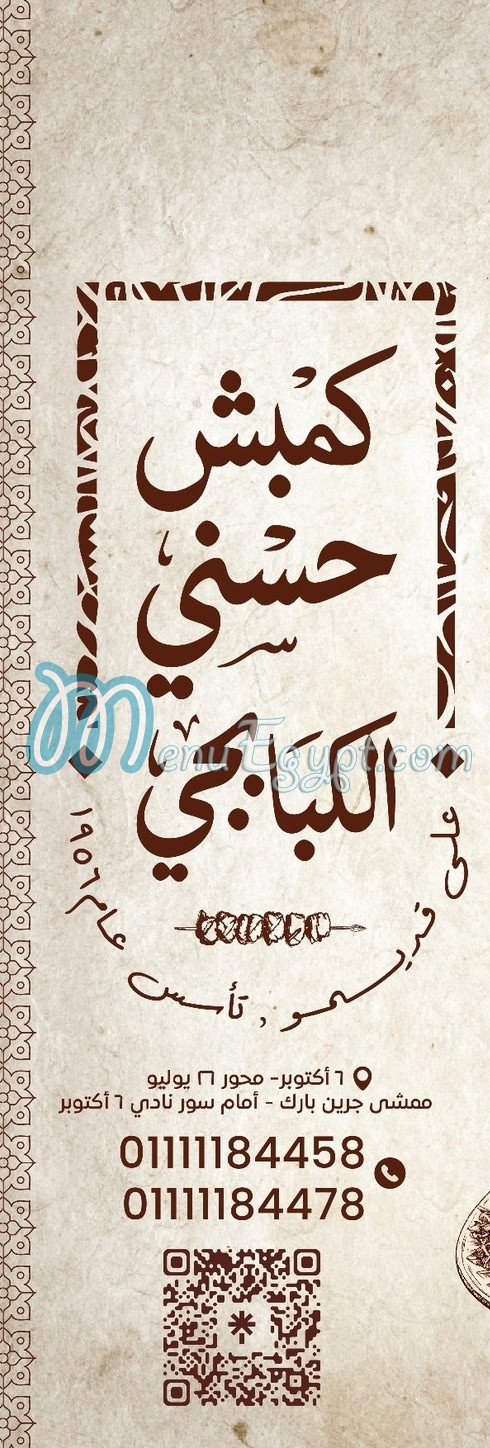 كمبش
حسني
الكبابجي
MenuEgypt.com
على قديمو , تأسس عام ١٩٥٦
٦ أكتوبر- محور ٢٦ يوليو
ممشى جرين بارك - أمام سور نادي ٦ أكتوبر
01111184458
01111184478